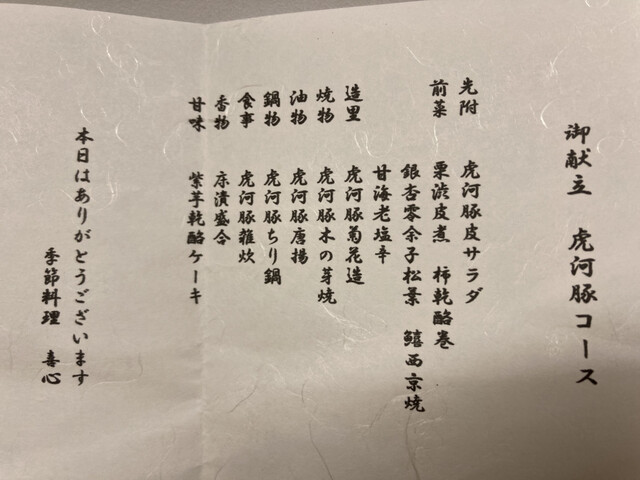 御献立　虎河豚コース
先附　虎河豚皮サラダ
前菜　栗渋皮煮　柿乾酪巻
銀杏零余子松葉　鱚西京焼
甘海老塩辛
造里　虎河豚菊花造
焼物　虎河豚木の芽焼
油物　虎河豚唐揚
鍋物　虎河豚ちり鍋
食事　虎河豚雑炊
香物　床漬盛合
甘味　紫芋乾酪ケーキ
本日はありがとうございます
季節料理　喜心